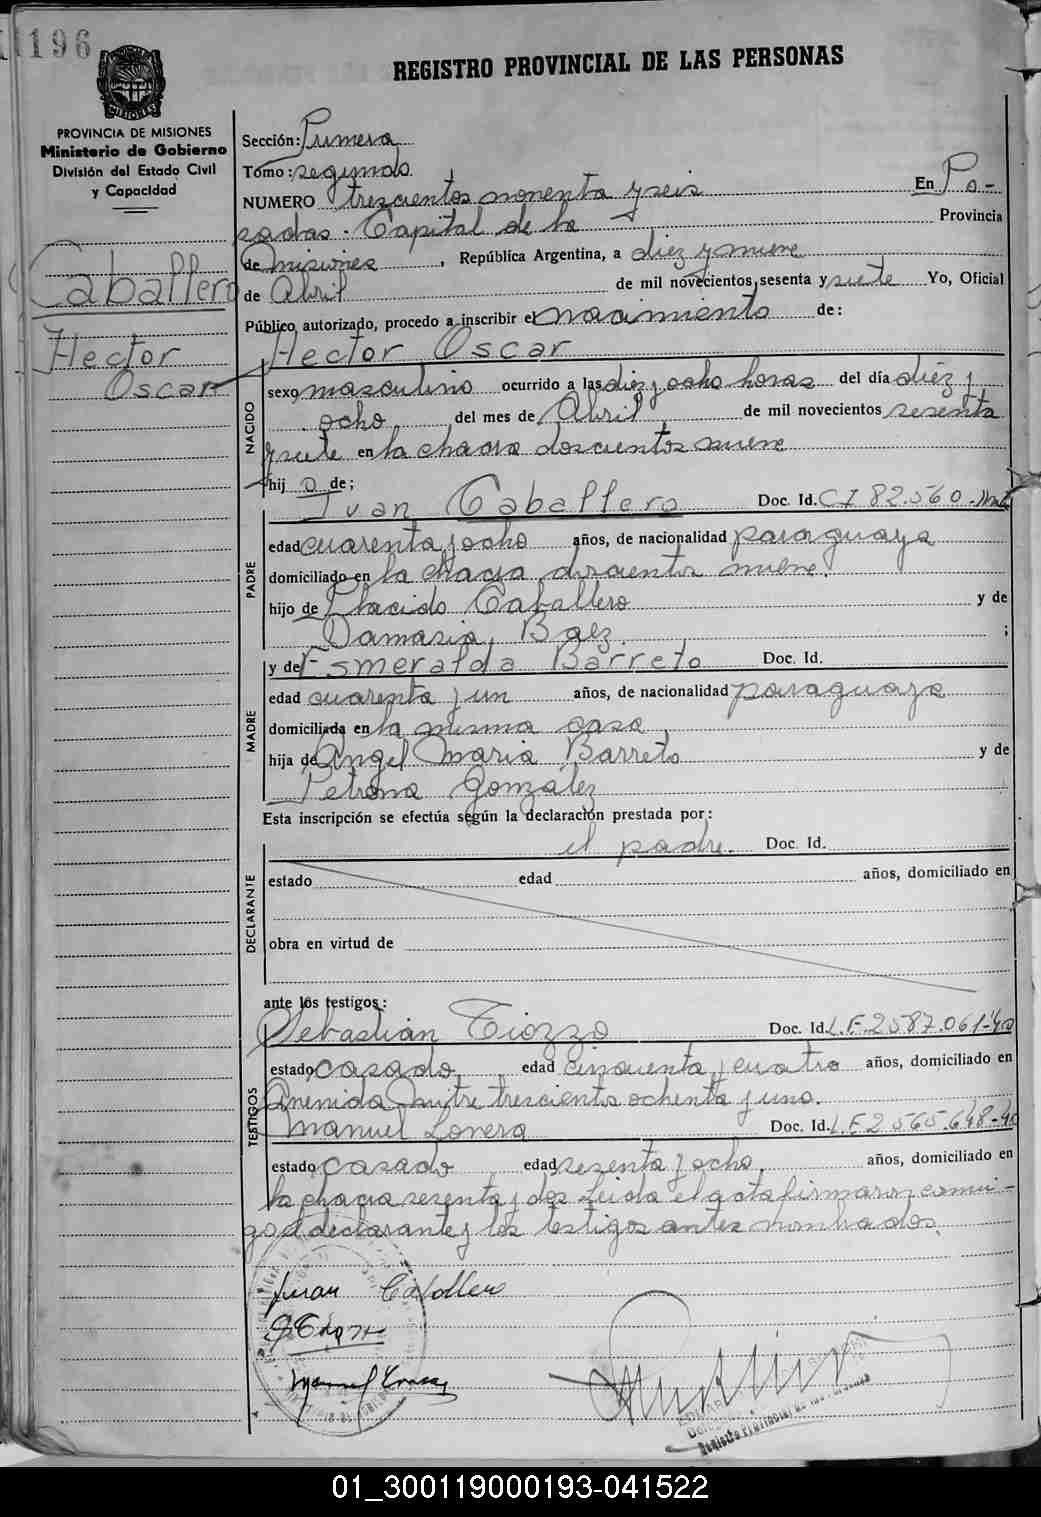 196
REGISTRO PROVINCIAL DE LAS PERSONAS
MISIONES
PROVINCIA DE MISIONES
Ministerio de Gobierno
División del Estado Civil
y Capacidad
Caballero
Hector
Oscar
Sección: Primera
Tomo: segundo.
NUMERO trescientos noventa y seis En Po-
sadas. Capital de la Provincia
de Misiones, República Argentina, a diez y nueve
de Abril de mil novecientos sesenta y siete Yo, Oficial
Público autorizado, procedo a inscribir el nacimiento de:
Hector Oscar
NACIDO
sexo masculino ocurrido a las diez y ocho horas del día diez y
ocho del mes de Abril de mil novecientos sesenta
y siete en la chacra doscientos nueve
hij o de;
Juan Caballero Doc. Id. C I 82.560
PADRE
edad cuarenta y ocho años, de nacionalidad paraguaya
domiciliado en la chacra doscientos nueve.
hijo de Placido Caballero y de
Damasia Baez ;
y de Esmeralda Barreto Doc. Id.
MADRE
edad cuarenta y un años, de nacionalidad paraguaya
domiciliada en la misma casa
hija de Angel Maria Barreto y de
Petrona González
Esta inscripción se efectúa según la declaración prestada por:
el padre. Doc. Id.
DECLARANTE
estado edad años, domiciliado en
obra en virtud de
ante los testigos:
Sebastián Tiozzo Doc. Id. L.E. 2587.061
TESTIGOS
estado casado edad cincuenta y cuatro años, domiciliado en
Avenida Mitre trescientos ochenta y uno.
Manuel Lovera Doc. Id. L.E. 2565.648
estado casado edad sesenta y ocho, años, domiciliado en
la chacra sesenta y dos Leida el acta firmaron conmi-
go el declarante y los testigos antes nombrados
Juan Caballero
Registro Provincial de las Personas
01_300119000193-041522